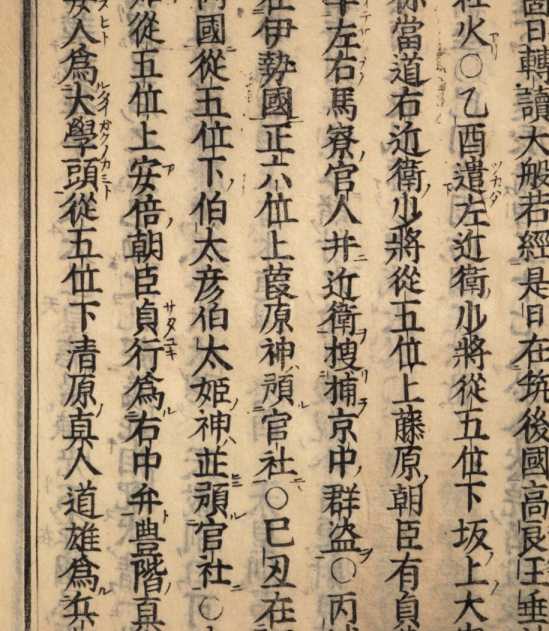 日轉讀大般若經是日在筑後國高良玉垂
社火○乙酉遣左近衛少將從五位下坂上大
當道右近衛少將從五位上藤原朝臣有貞
左右馬寮官人并近衛搜捕京中群盜○丙
在伊勢國正六位上葭原神預官社○己丑在
內國從五位下伯太彦伯太姬神並預官社○
從五位上安倍朝臣貞行爲右中弁豊階真
安人爲大學頭從五位下清原真人道雄爲兵